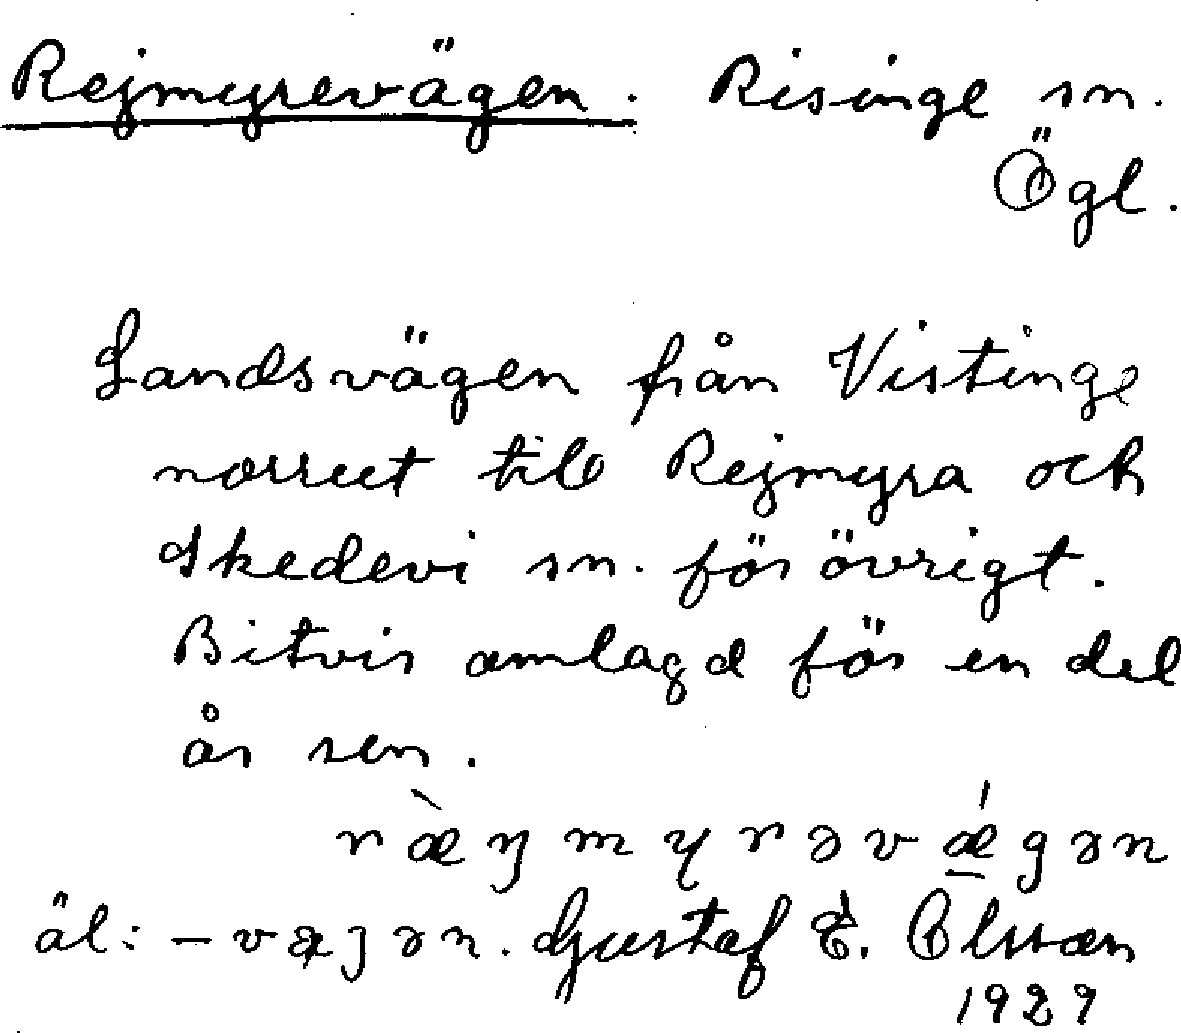 Rejmyrevägen. Risinge sn.
Ögl.
Landsvägen från Vistinge
norrut till Rejmyra och
Skedevi sn. för övrigt.
Bitvis omlagd för en del
år sen.
ræ̀ŋmyrəvǽgən
äl: – vægən. Gustaf E. Olsson
1929